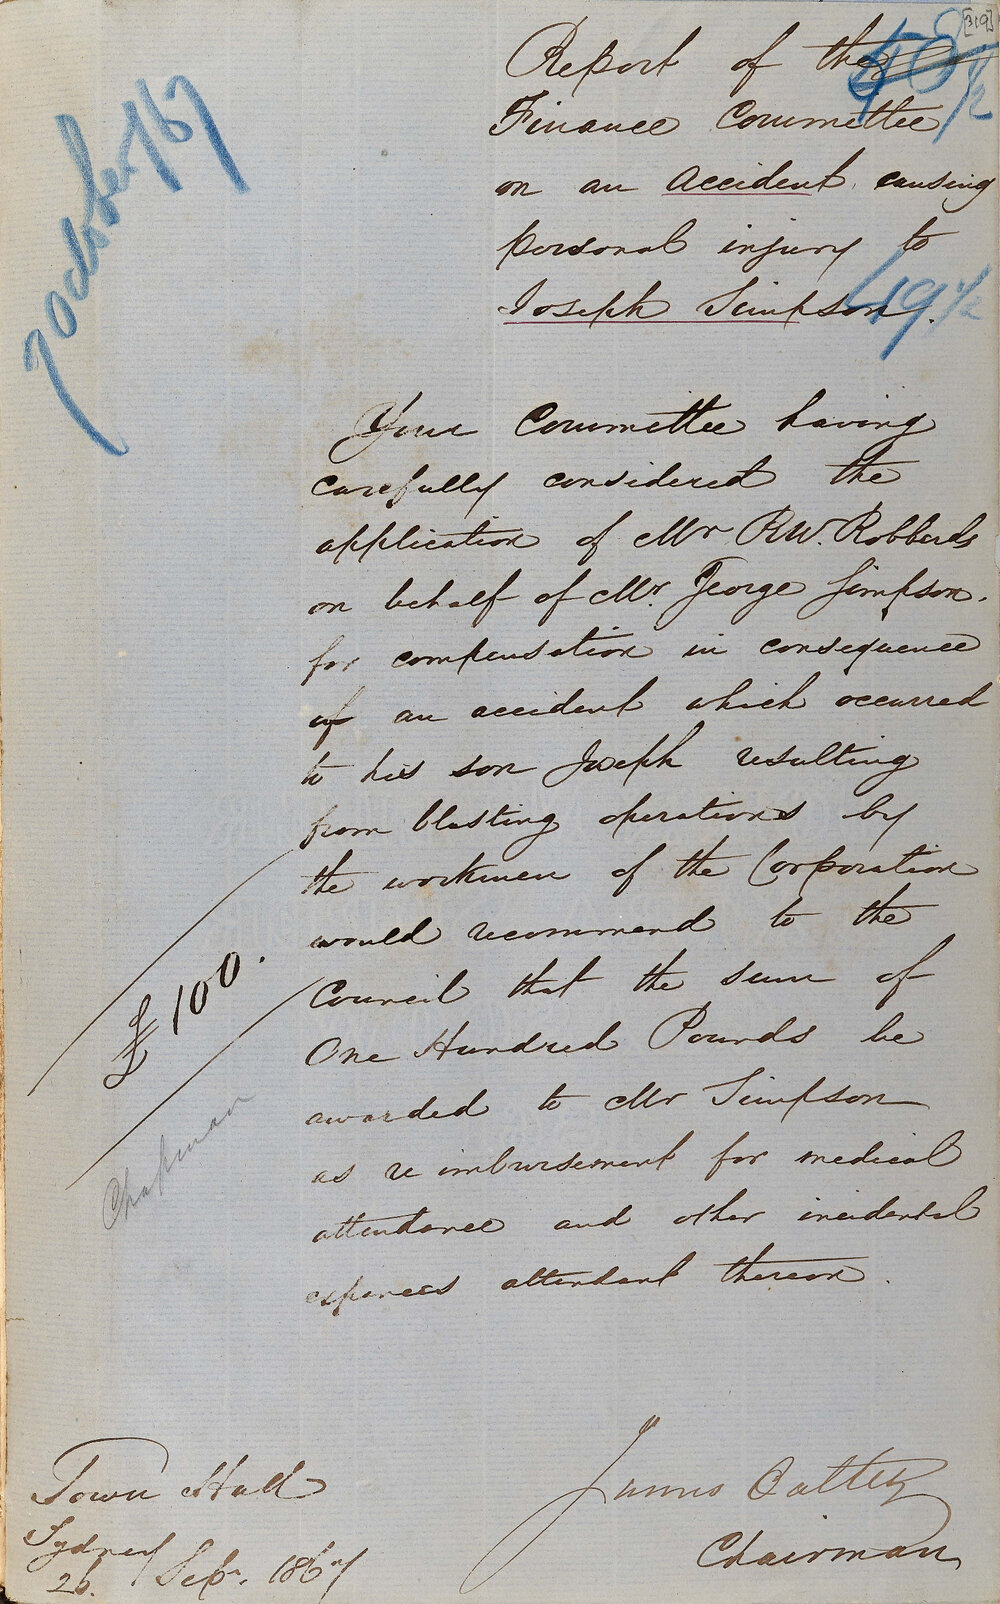 [319]
Report of the
Finance Committee
on an Accident causing
personal injury to
Joseph Simpson.
7 October /67
49 1/2
Your Committee having
carefully considered the
application of Mr R.W. Robberds
on behalf of Mr. George Simpson.
for compensation in consequence
of an accident which occurred
to his son Joseph resulting
from blasting operations by
the workmen of the Corporation
would recommend to the
Council that the sum of
One Hundred Pounds be
awarded to Mr Simpson
as reimbursement for medical
attendance and other incidental
expenses attendant thereon.
£100.
Chapman
Town Hall
Sydney
26. Sepr. 1867
James Oatley
Chairman